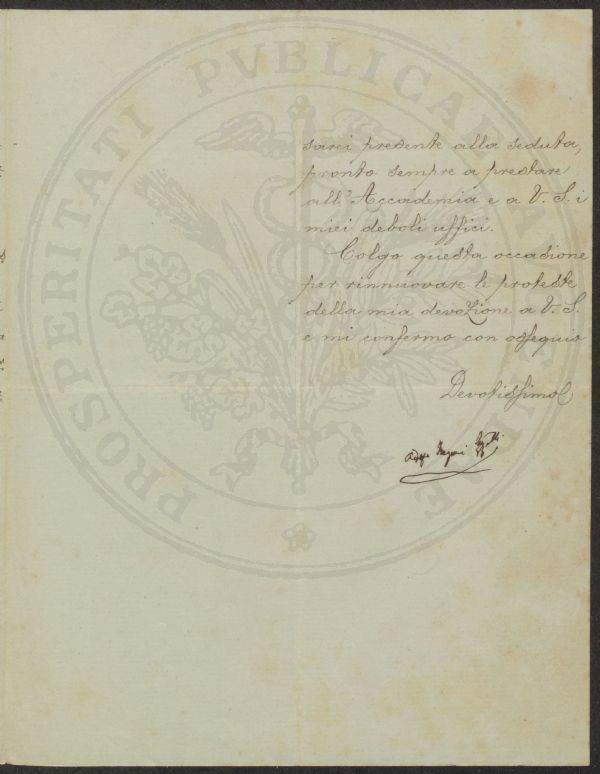 sarci presente alla seduta,
pronto sempre a prestare
all'Accademia e a V. S. i
miei deboli uffici.
Colgo questa occasione
per rinnuovare le proteste
della mia devozione a V. S.
e mi confermo con ossequio
Devotissimo
PROSPERITATI PVBLICAE AVGENDAE